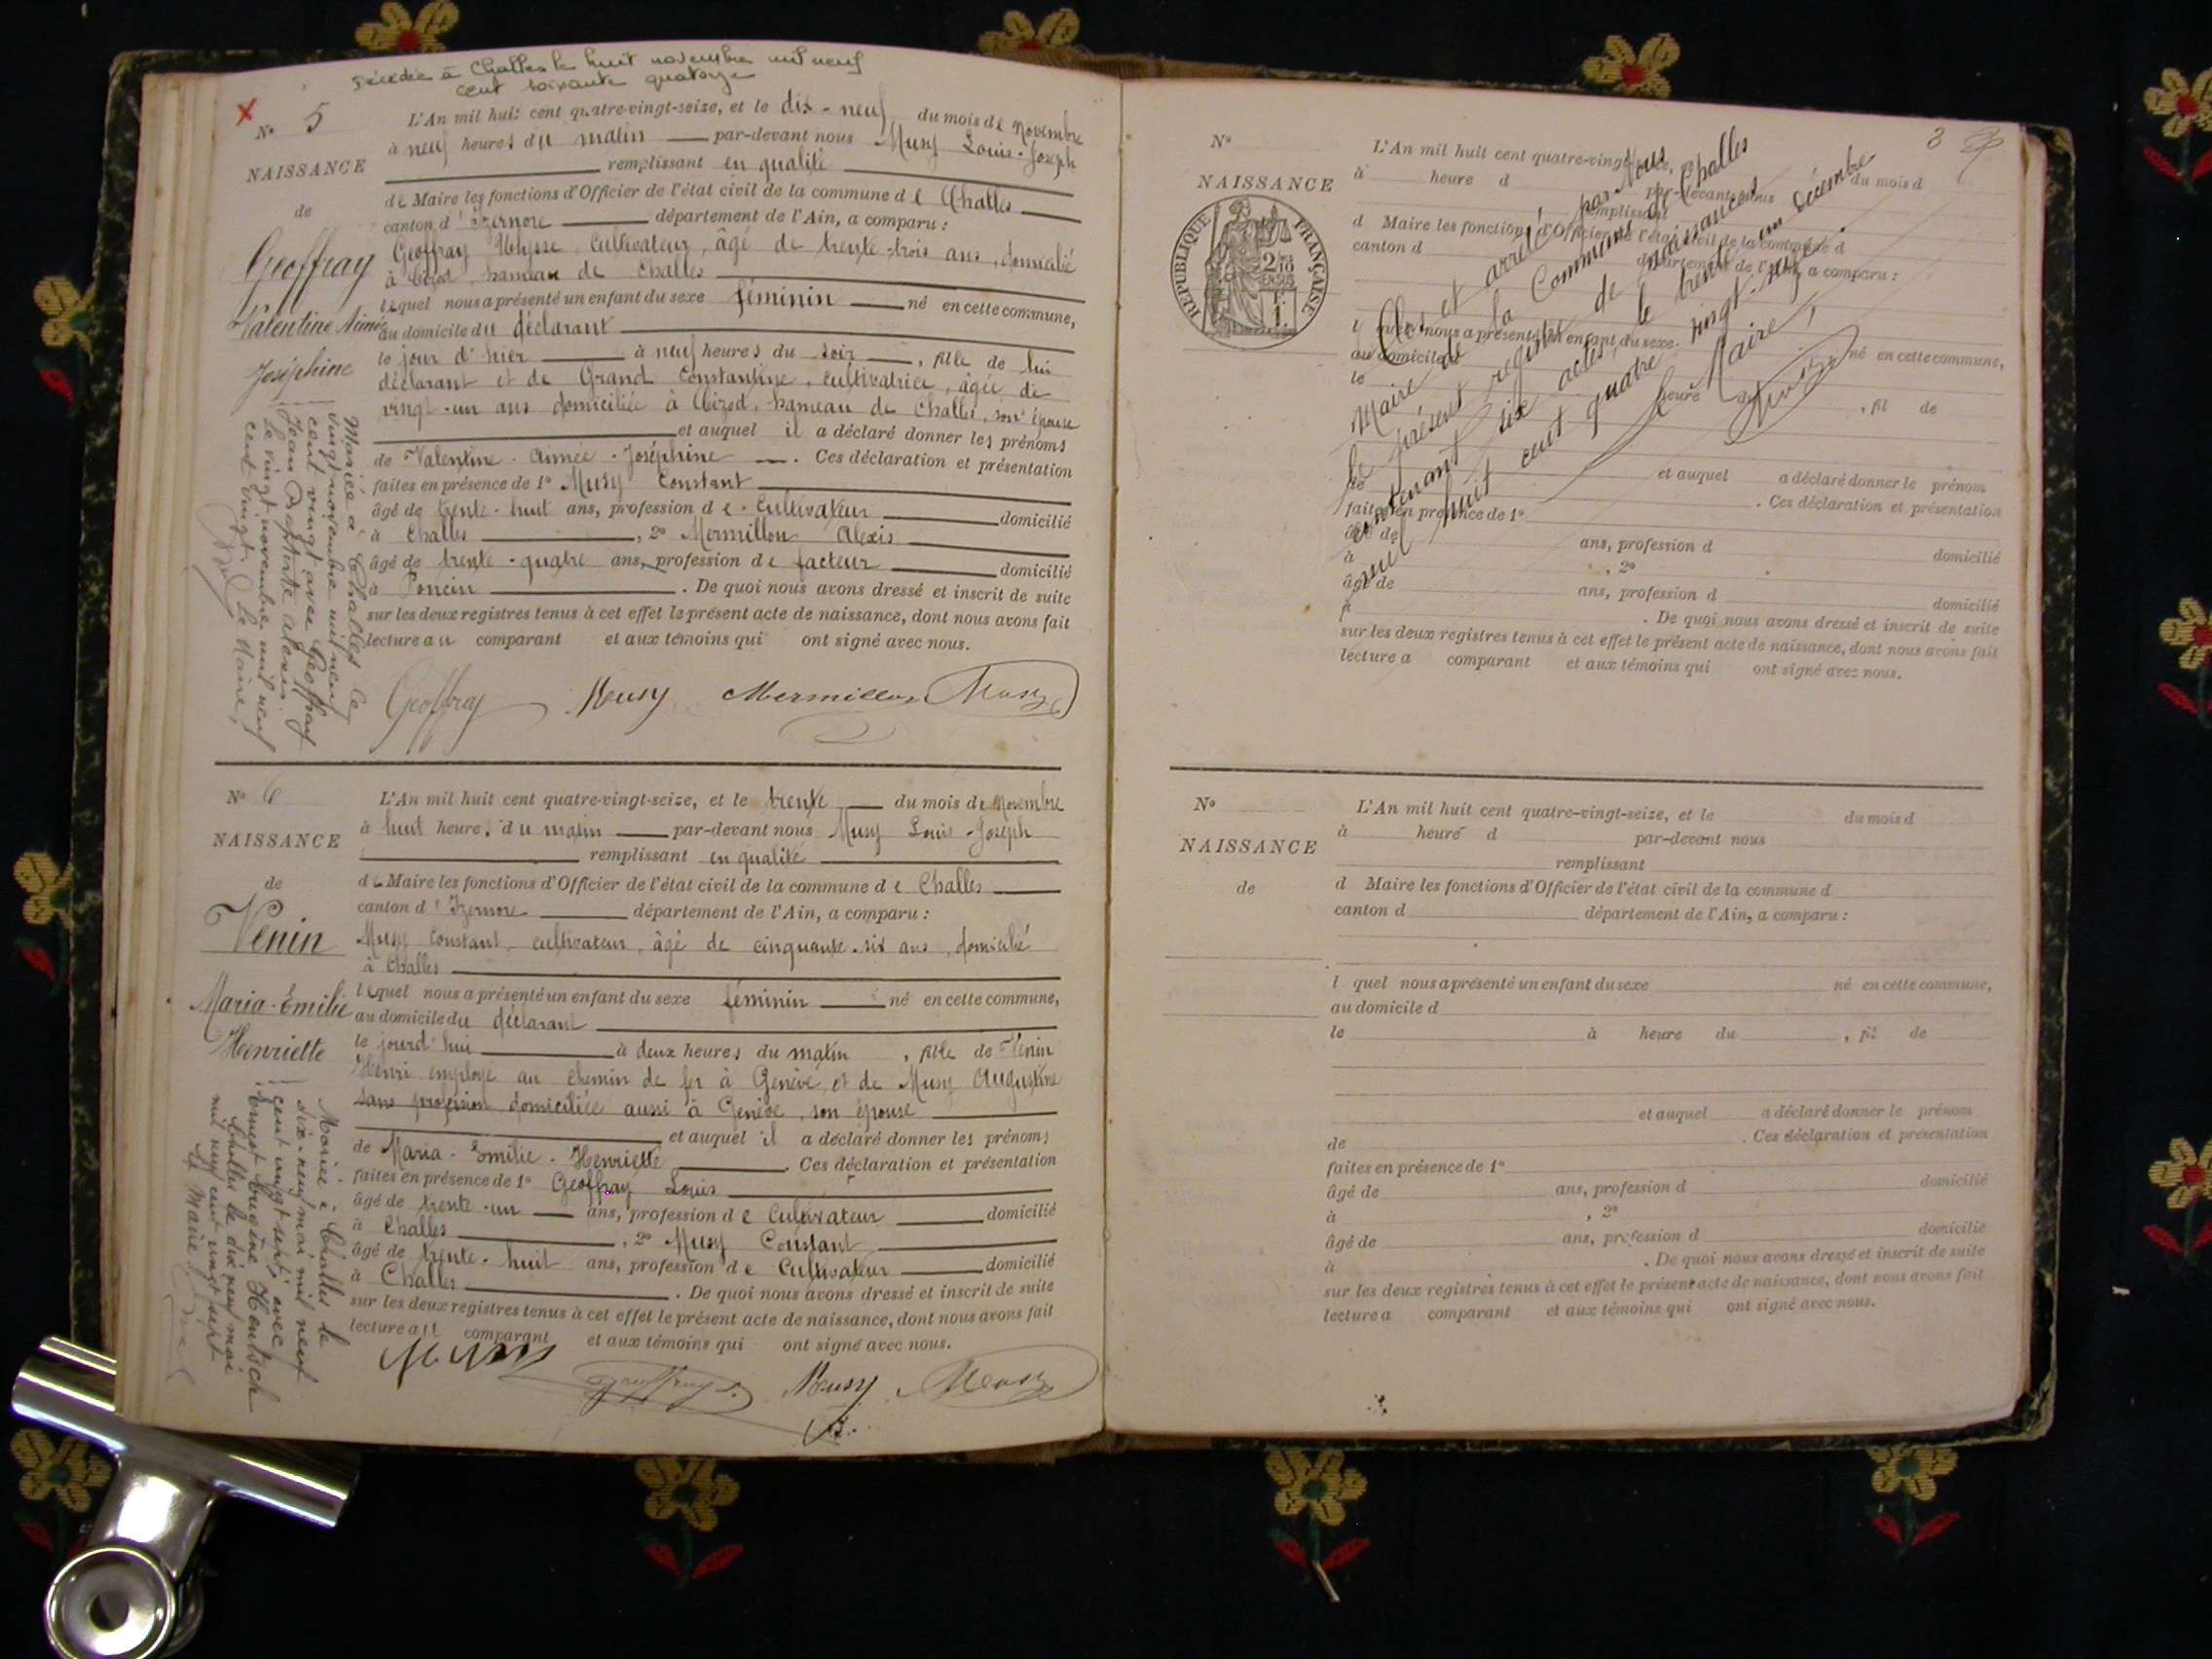 décédée à Challes le huit novembre mil neuf
cent soixante quatorze
N° 5
NAISSANCE
de
Geoffray
Valentine Aimée
Joséphine
Mariée à Challes le
vingt novembre mil neuf
cent vingt avec Geoffray
Jean Baptiste Alexis.
Le vingt novembre mil neuf
cent vingt. Le Maire,
L'An mil huit cent quatre-vingt-seize, et le dix-neuf du mois de Novembre
à neuf heures du matin par-devant nous Musy Louis-Joseph
remplissant en qualité
de Maire les fonctions d'Officier de l'état civil de la commune de Challes
canton d'Izernore département de l'Ain, a comparu :
Geoffray Ulysse, cultivateur, âgé de trente-trois ans, domicilié
à hameau de Challes
lequel nous a présenté un enfant du sexe féminin né en cette commune,
au domicile du déclarant
le jour d'hier à neuf heures du soir, fille de lui
déclarant et de Grand Constantine, cultivatrice, âgée de
vingt-un ans domiciliée à hameau de Challes, son épouse
et auquel il a déclaré donner les prénoms
de Valentine-Aimée-Joséphine. Ces déclaration et présentation
faites en présence de 1° Musy Constant
âgé de trente-huit ans, profession de cultivateur domicilié
à Challes, 2° Mermillon Alexis
âgé de trente-quatre ans, profession de facteur domicilié
à Poncin. De quoi nous avons dressé et inscrit de suite
sur les deux registres tenus à cet effet le présent acte de naissance, dont nous avons fait
lecture au comparant et aux témoins qui ont signé avec nous.
Geoffray Musy Mermillon Musy
N° 6
NAISSANCE
de
Venin
Maria-Emilie
Henriette
Mariée à Challes le
dix-neuf mai mil neuf
cent vingt sept, avec
Ernest Eugène Hentsch
Challes le dix neuf mai
mil neuf cent vingt sept
Le Maire
L'An mil huit cent quatre-vingt-seize, et le trente du mois de Novembre
à huit heures du matin par-devant nous Musy Louis-Joseph
remplissant en qualité
de Maire les fonctions d'Officier de l'état civil de la commune de Challes
canton d'Izernore département de l'Ain, a comparu :
Musy Constant, cultivateur, âgé de cinquante-six ans, domicilié
à Challes
lequel nous a présenté un enfant du sexe féminin né en cette commune,
au domicile du déclarant
le jourd'hui à deux heures du matin, fille de Venin
Henri employé au chemin de fer à Genève et de Musy Augustine
sans profession domiciliée aussi à Genève, son épouse
et auquel il a déclaré donner les prénoms
de Maria-Emilie-Henriette. Ces déclaration et présentation
faites en présence de 1° Geoffray Louis
âgé de trente-un ans, profession de Cultivateur domicilié
à Challes, 2° Musy Constant
âgé de trente-huit ans, profession de Cultivateur domicilié
à Challes. De quoi nous avons dressé et inscrit de suite
sur les deux registres tenus à cet effet le présent acte de naissance, dont nous avons fait
lecture au comparant et aux témoins qui ont signé avec nous.
Musy Musy
3
N°
NAISSANCE
REPUBLIQUE FRANÇAISE
L'An mil huit cent quatre-vingt-
à heure d par-devant nous du mois d
remplissant
d Maire les fonctions d'Officier de l'état civil de la commune d
canton d département de l'Ain, a comparu :
l quel nous a présenté un enfant du sexe né en cette commune,
au domicile d
le heure du, fil de
et auquel a déclaré donner le prénom
de. Ces déclaration et présentation
faites en présence de 1°
âgé de ans, profession d domicilié
à, 2°
âgé de ans, profession d domicilié
à. De quoi nous avons dressé et inscrit de suite
sur les deux registres tenus à cet effet le présent acte de naissance, dont nous avons fait
lecture a comparant et aux témoins qui ont signé avec nous.
Clos et arrêté par Nous,
Maire de la Commune de Challes
le présent registre de naissances
contenant six actes, le trente un décembre
mil huit cent quatre vingt-seize.
Le Maire,
Musy
N°
NAISSANCE
de
L'An mil huit cent quatre-vingt-seize, et le du mois d
à heure d par-devant nous
remplissant
d Maire les fonctions d'Officier de l'état civil de la commune d
canton d département de l'Ain, a comparu :
l quel nous a présenté un enfant du sexe né en cette commune,
au domicile d
le à heure du, fil de
et auquel a déclaré donner le prénom
de. Ces déclaration et présentation
faites en présence de 1°
âgé de ans, profession d domicilié
à, 2°
âgé de ans, profession d domicilié
à. De quoi nous avons dressé et inscrit de suite
sur les deux registres tenus à cet effet le présent acte de naissance, dont nous avons fait
lecture a comparant et aux témoins qui ont signé avec nous.